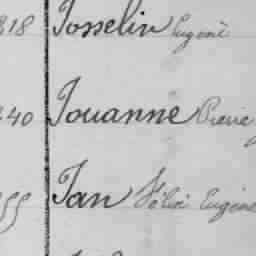 818 Josselin Eugène
40 Jouanne Pierre
55 Jan Félix Eugène